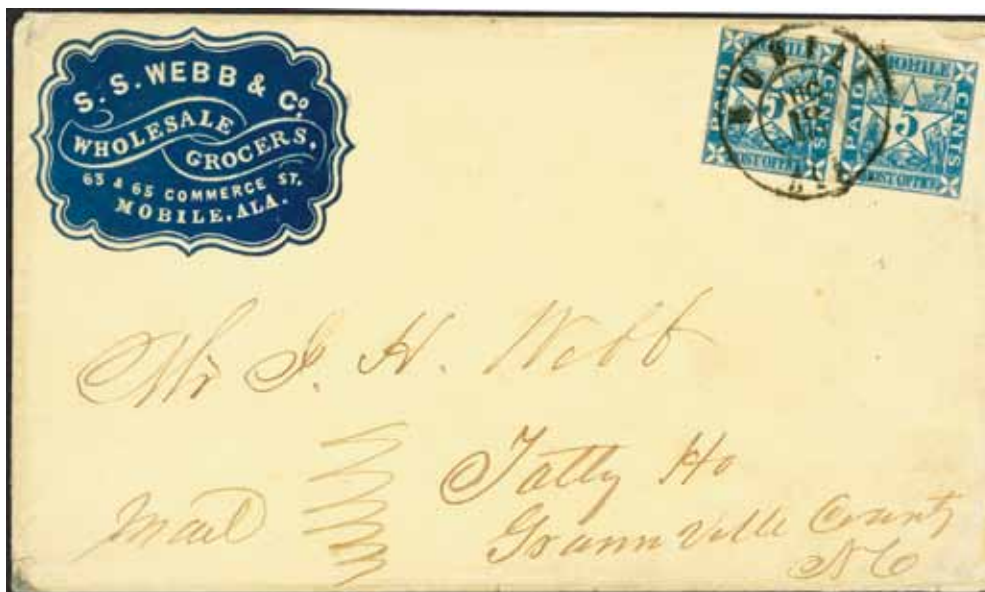 S. S. WEBB & Co.
WHOLESALE
GROCERS.
63 & 65 COMMERCE ST.
MOBILE, ALA.
MOBILE
PAID 5 CENTS
POST OFFICE
MOBILE
PAID 5 CENTS
POST OFFICE
MOBILE
Mr J. H. Webb
Tally Ho
Mail
Grannville County
NC